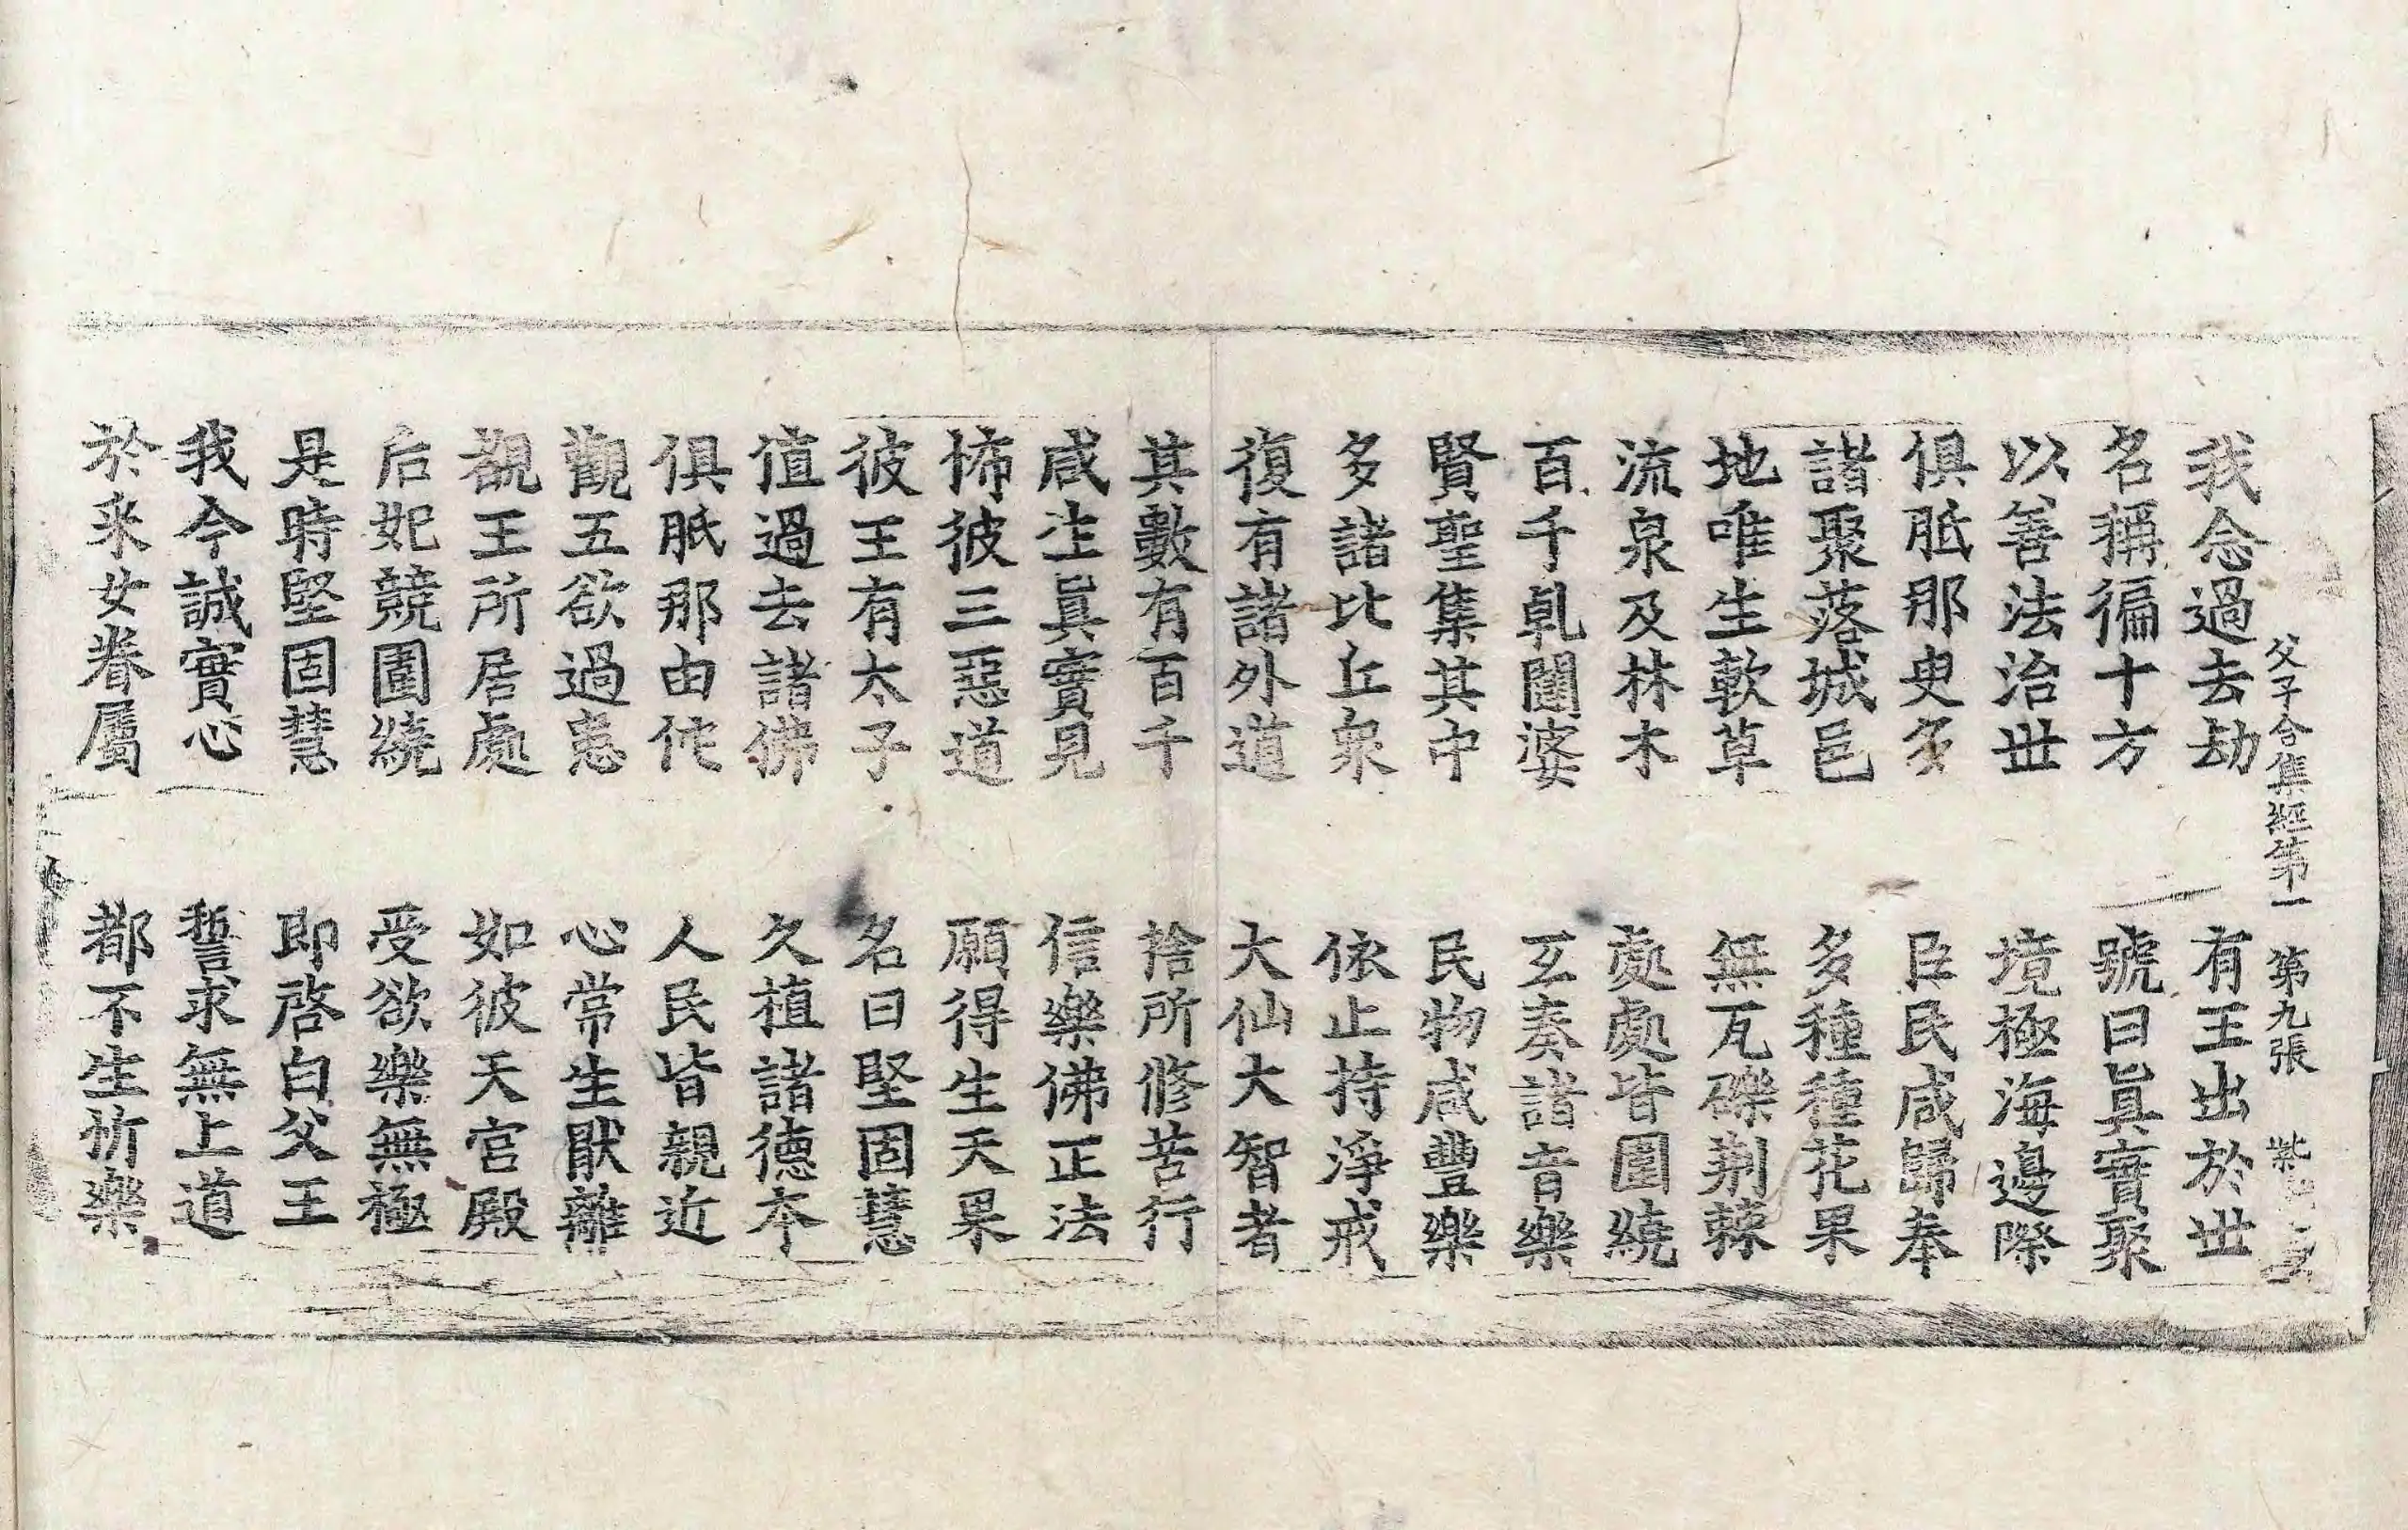 父子合集經第一 第九張 紫
我念過去劫 有王出於世
名稱徧十方 號曰眞實聚
以善法治世 境極海邊際
俱胝那臾多 臣民咸歸奉
諸聚落城邑 多種種花果
地唯生軟草 無瓦礫荆棘
流泉及林木 處處皆圍繞
百千乹闥婆 互奏諸音樂
賢聖集其中 民物咸豐樂
多諸比丘衆 依止持淨戒
復有諸外道 大仙大智者
其數有百千 捨所修苦行
咸生眞實見 信樂佛正法
怖彼三惡道 願得生天果
彼王有太子 名曰堅固慧
值過去諸佛 久植諸德本
俱胝那由佗 人民皆親近
觀五欲過患 心常生猒離
觀王所居處 如彼天宮殿
后妃競圍繞 受欲樂無極
是時堅固慧 即啓白父王
我今誠實心 誓求無上道
於采女眷屬 都不生忻樂